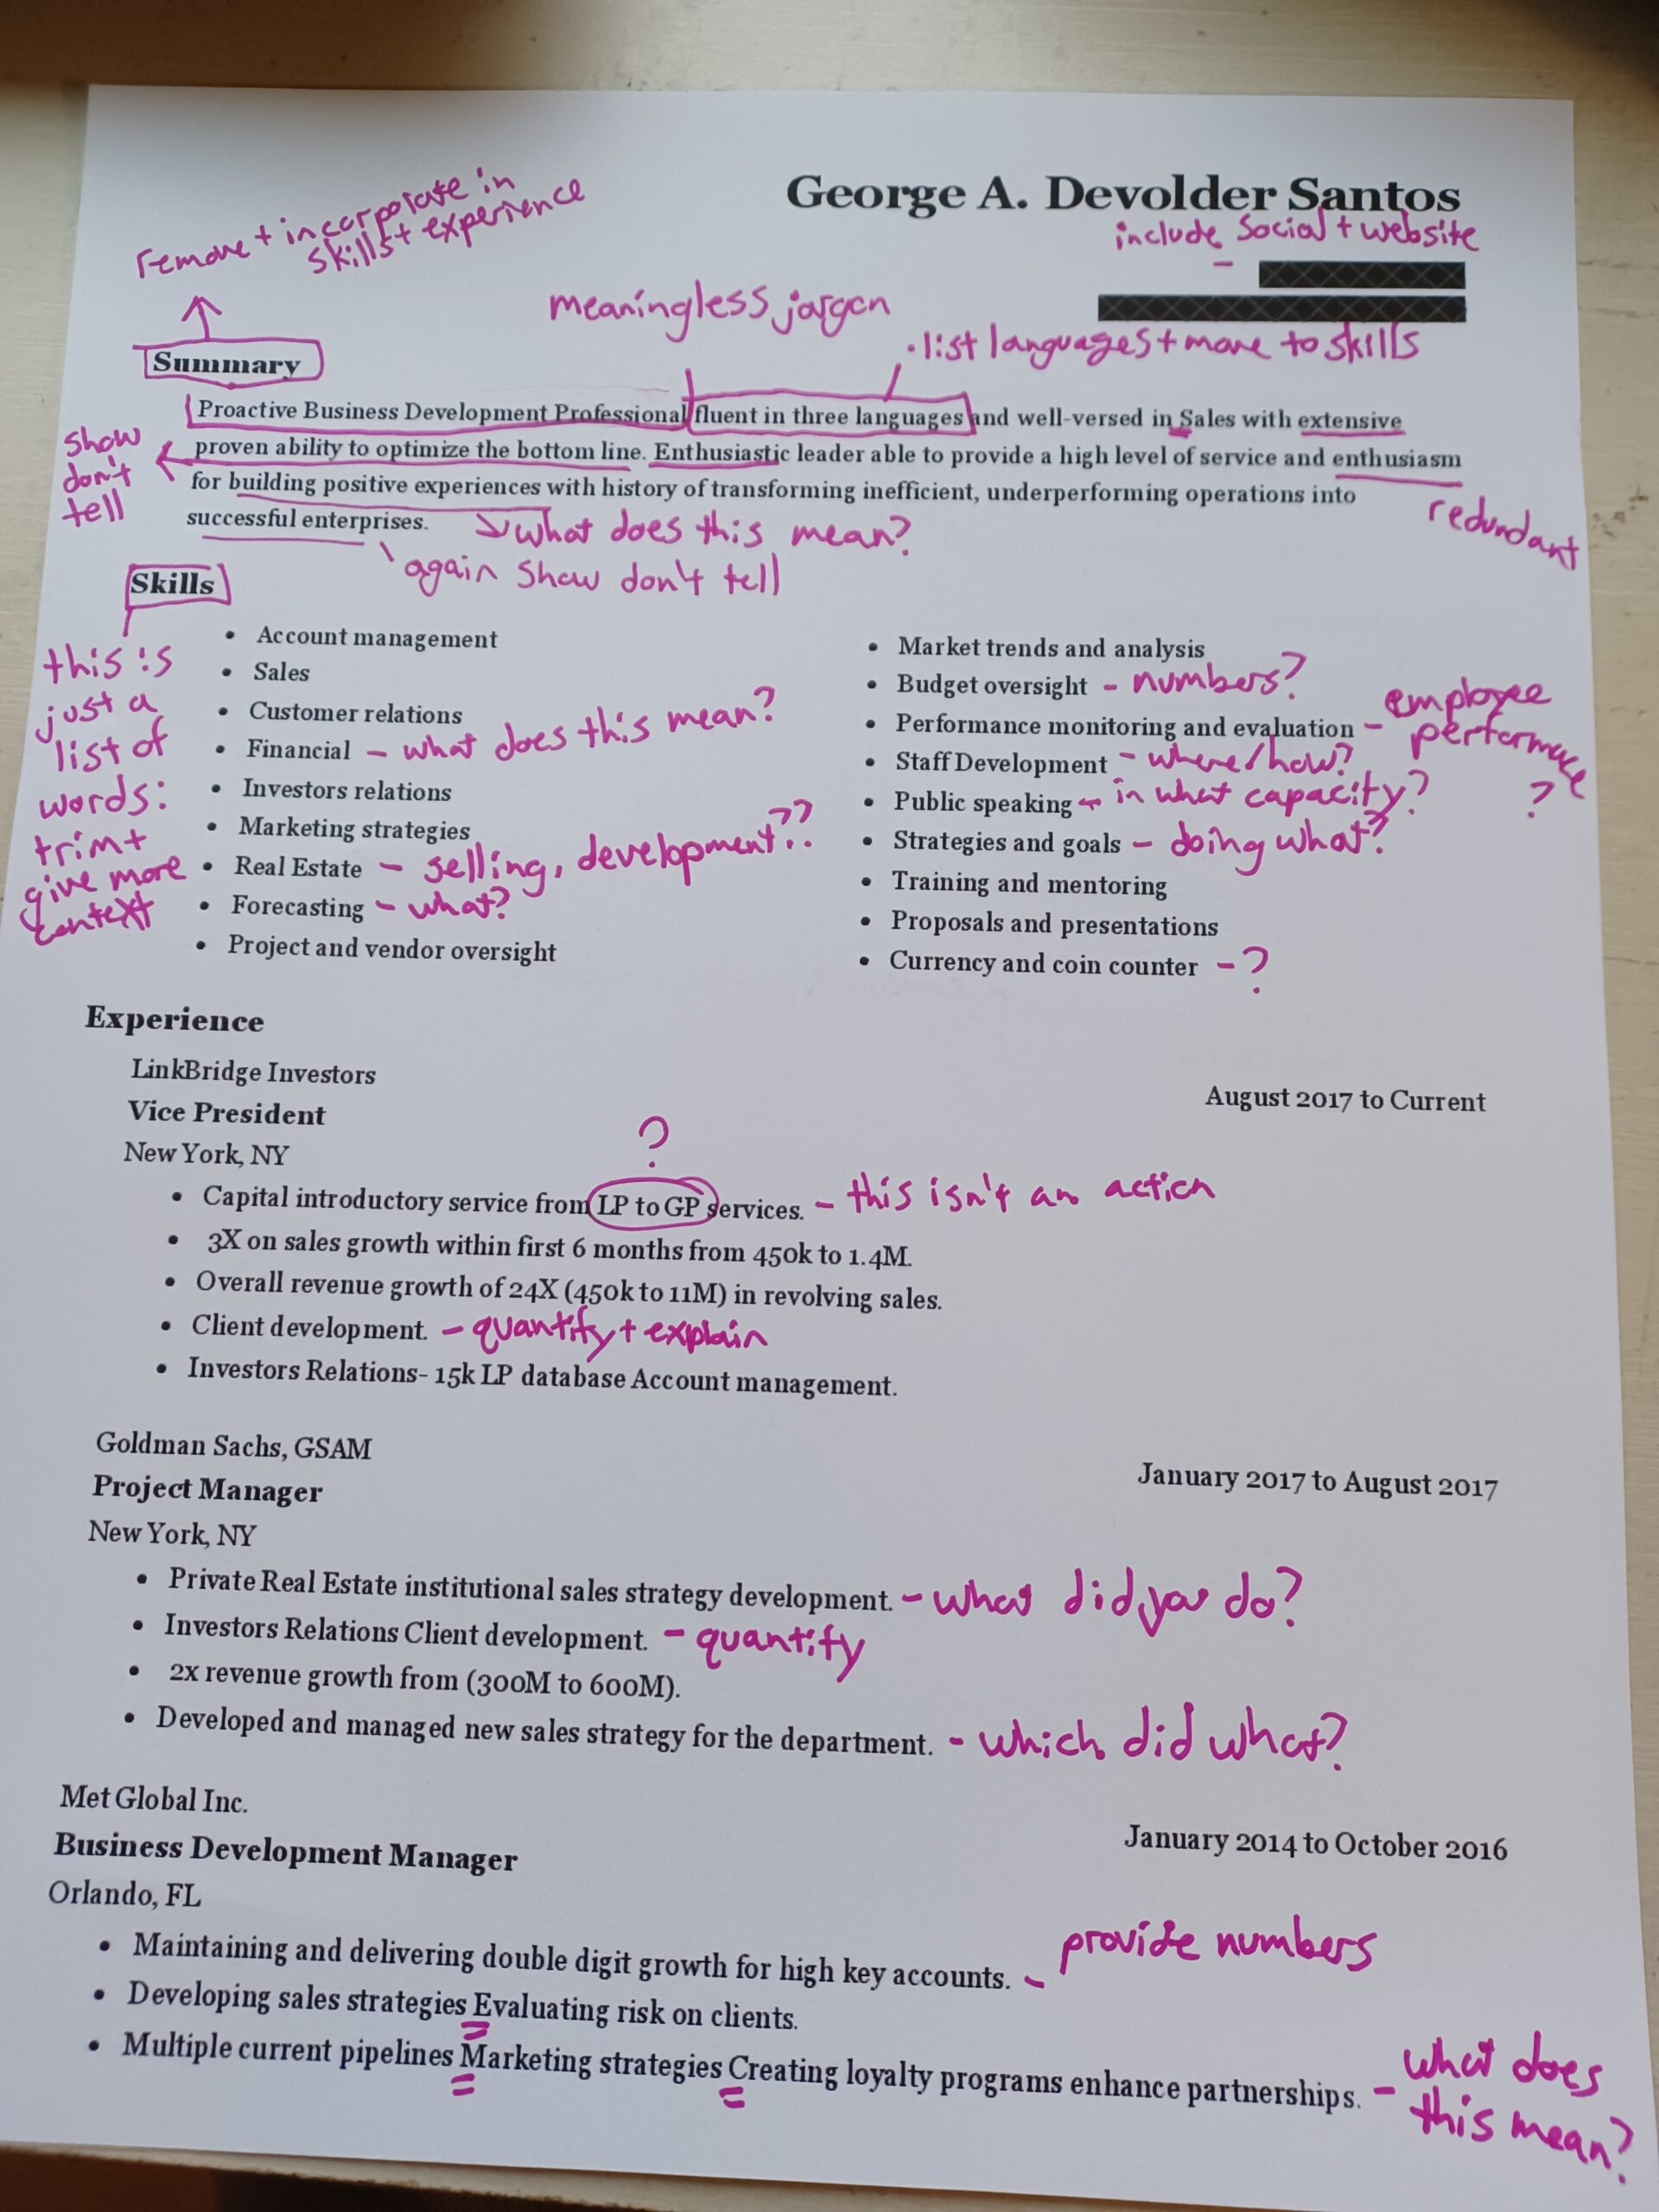 remove + incorporate in
skills + experience
George A. Devolder Santos
include social + website
meaningless jargon
· list languages + move to skills
Summary
Proactive Business Development Professional fluent in three languages and well-versed in Sales with extensive
proven ability to optimize the bottom line. Enthusiastic leader able to provide a high level of service and enthusiasm
for building positive experiences with history of transforming inefficient, underperforming operations into
successful enterprises.
show
don't
tell
redundant
what does this mean?
again show don't tell
Skills
this is
just a
list of
words:
trim +
give more
context
• Account management
• Sales
• Customer relations
• Financial - what does this mean?
• Investors relations
• Marketing strategies
• Real Estate - selling, development??
• Forecasting - what?
• Project and vendor oversight
• Market trends and analysis
• Budget oversight - numbers?
• Performance monitoring and evaluation - employee
performance
?
• Staff Development - where/how?
• Public speaking - in what capacity?
• Strategies and goals - doing what?
• Training and mentoring
• Proposals and presentations
• Currency and coin counter - ?
Experience
LinkBridge Investors
August 2017 to Current
Vice President
New York, NY
?
• Capital introductory service from LP to GP services. - this isn't an action
• 3X on sales growth within first 6 months from 450k to 1.4M.
• Overall revenue growth of 24X (450k to 11M) in revolving sales.
• Client development. - quantify + explain
• Investors Relations- 15k LP database Account management.
Goldman Sachs, GSAM
January 2017 to August 2017
Project Manager
New York, NY
• Private Real Estate institutional sales strategy development. - what did you do?
• Investors Relations Client development. - quantify
• 2x revenue growth from (300M to 600M).
• Developed and managed new sales strategy for the department. - which did what?
Met Global Inc.
January 2014 to October 2016
Business Development Manager
Orlando, FL
• Maintaining and delivering double digit growth for high key accounts. - provide numbers
• Developing sales strategies Evaluating risk on clients.
• Multiple current pipelines Marketing strategies Creating loyalty programs enhance partnerships. - what does
this mean?